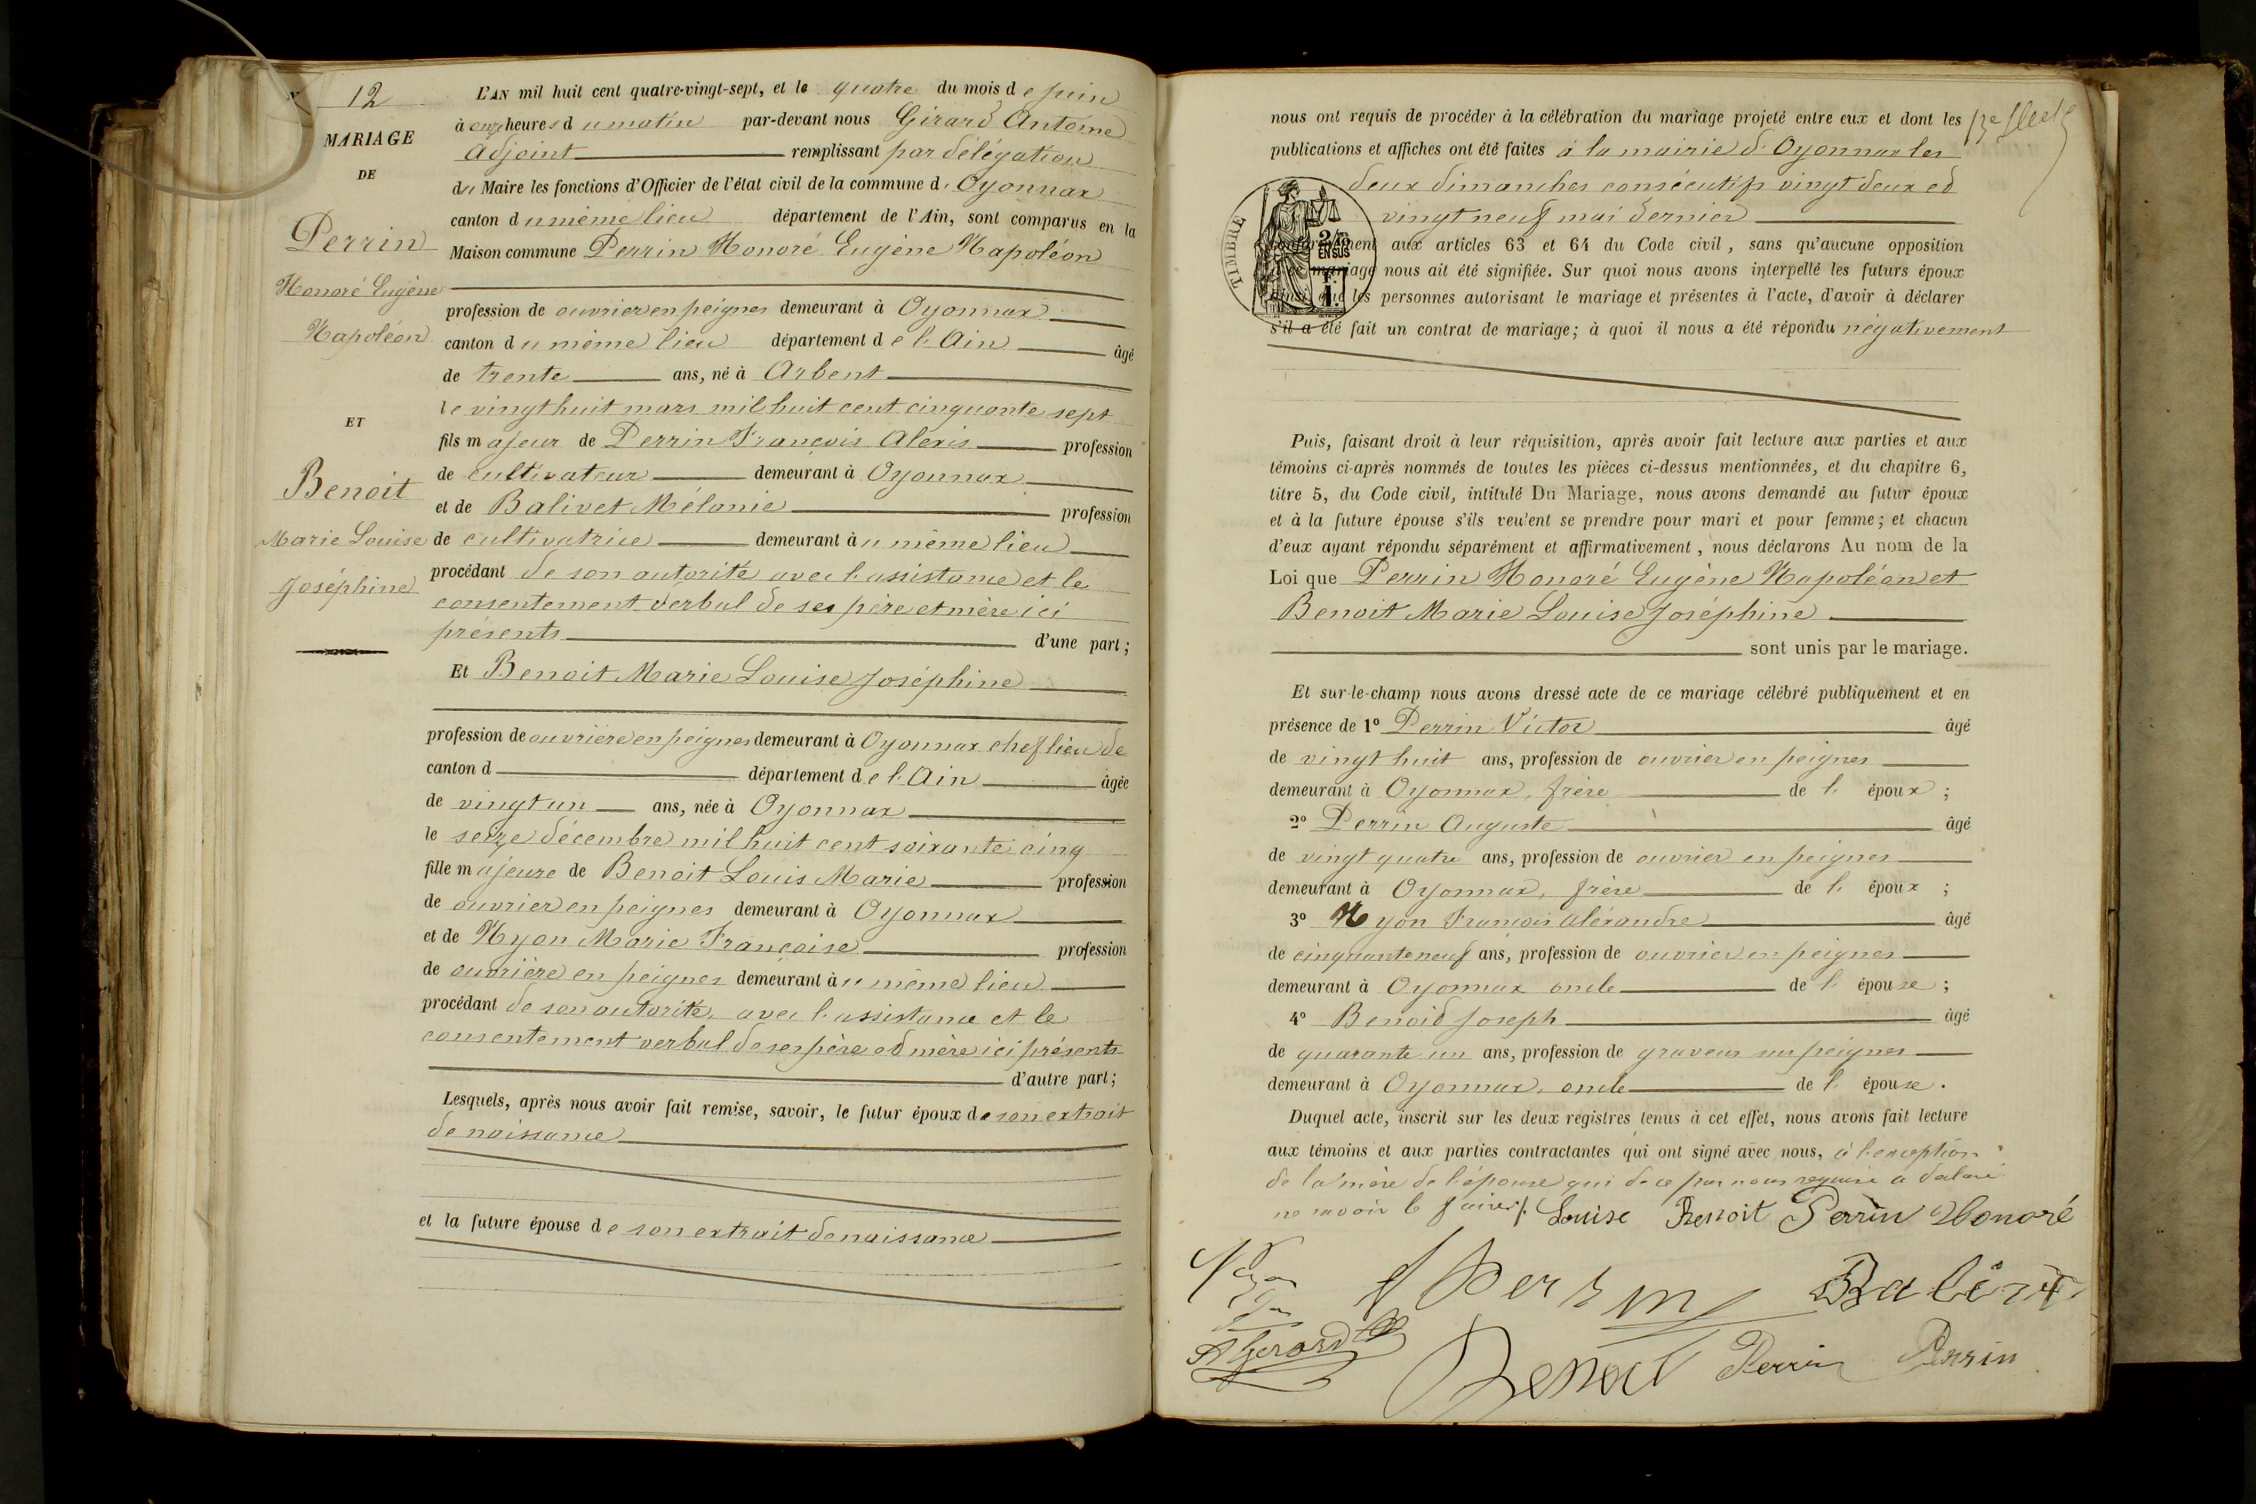 N° 12
MARIAGE
DE
Perrin
Honoré Eugène
Napoléon
ET
Benoit
Marie Louise
Joséphine
L'AN mil huit cent quatre-vingt-sept, et le quatre du mois de juin
à onze heures du matin par-devant nous Girard Antoine
Adjoint remplissant par délégation
du Maire les fonctions d'Officier de l'état civil de la commune d'Oyonnax
canton du même lieu département de l'Ain, sont comparus en la
Maison commune Perrin Honoré Eugène Napoléon
profession de ouvrier en peignes demeurant à Oyonnax
canton du même lieu département de l'Ain âgé
de trente ans, né à Arbent
le vingt huit mars mil huit cent cinquante sept
fils majeur de Perrin François Alexis profession
de cultivateur demeurant à Oyonnax
et de Balivet Mélanie profession
de cultivatrice demeurant au même lieu
procédant de son autorité avec l'assistance et le
consentement verbal de ses père et mère ici
présents d'une part ;
Et Benoit Marie Louise Joséphine
profession de ouvrière en peignes demeurant à Oyonnax chef lieu de
canton d département de l'Ain âgée
de vingt un ans, née à Oyonnax
le seize décembre mil huit cent soixante cinq
fille majeure de Benoit Louis Marie profession
de ouvrier en peignes demeurant à Oyonnax
et de Nyon Marie Françoise profession
de ouvrière en peignes demeurant au même lieu
procédant de son autorité, avec l'assistance et le
consentement verbal de ses père et mère ici présents
d'autre part ;
Lesquels, après nous avoir fait remise, savoir, le futur époux de son extrait
de naissance
et la future épouse de son extrait de naissance
nous ont requis de procéder à la célébration du mariage projeté entre eux et dont les
publications et affiches ont été faites à la mairie d'Oyonnax les
deux dimanches consécutifs vingt deux et
vingt neuf mai dernier
TIMBRE
2/10
EN SUS
1 F.
conformément aux articles 63 et 64 du Code civil, sans qu'aucune opposition
mariage nous ait été signifiée. Sur quoi nous avons interpellé les futurs époux
ainsi que les personnes autorisant le mariage et présentes à l'acte, d'avoir à déclarer
s'il a été fait un contrat de mariage ; à quoi il nous a été répondu négativement
Puis, faisant droit à leur réquisition, après avoir fait lecture aux parties et aux
témoins ci-après nommés de toutes les pièces ci-dessus mentionnées, et du chapitre 6,
titre 5, du Code civil, intitulé Du Mariage, nous avons demandé au futur époux
et à la future épouse s'ils veulent se prendre pour mari et pour femme ; et chacun
d'eux ayant répondu séparément et affirmativement, nous déclarons Au nom de la
Loi que Perrin Honoré Eugène Napoléon et
Benoit Marie Louise Joséphine
sont unis par le mariage.
Et sur-le-champ nous avons dressé acte de ce mariage célébré publiquement et en
présence de 1° Perrin Victor âgé
de vingt huit ans, profession de ouvrier en peignes
demeurant à Oyonnax, frère de l'époux ;
2° Perrin Auguste âgé
de vingt quatre ans, profession de ouvrier en peignes
demeurant à Oyonnax, frère de l'époux ;
3° Nyon François Alexandre âgé
de cinquante neuf ans, profession de ouvrier en peignes
demeurant à Oyonnax oncle de l'épouse ;
4° Benoid Joseph âgé
de quarante un ans, profession de graveur sur peignes
demeurant à Oyonnax, oncle de l'épouse.
Duquel acte, inscrit sur les deux registres tenus à cet effet, nous avons fait lecture
aux témoins et aux parties contractantes qui ont signé avec nous, à l'exception
de la mère de l'épouse qui de ce par nous requise a déclaré
ne savoir le faire. Louise Benoit Perrin Honoré
Perrin Balivet
A Girard
Benoit Perrin Perrin